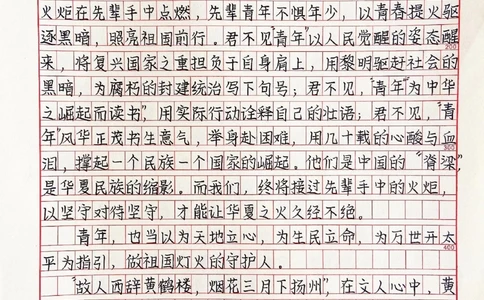 火炬在先辈手中点燃，先辈青年不惧年少，以青春提火驱
逐黑暗，照亮祖国前行。君不见“青年”以人民觉醒的姿态醒
200
来，将复兴国家之重担负于自身肩上，用黎明驱赶社会的
黑暗，为腐朽的封建统治写下句号；君不见，“青年”为中华
之崛起而读书”，用实际行动诠释自己的壮语；君不见，“青
年”风华正茂书生意气，举身赴困难，用几十载的心酸与血
300
泪，撑起一个民族一个国家的崛起。他们是中国的“脊梁”，
是华夏民族的缩影。而我们，终将接过先辈手中的火炬，
以坚守对待坚守，才能让华夏之火久经不绝。
青年，也当以为天地立心，为生民立命，为万世开太
400
平为指引，做祖国灯火的守护人。
“故人西辞黄鹤楼，烟花三月下扬州”，在文人心中，黄